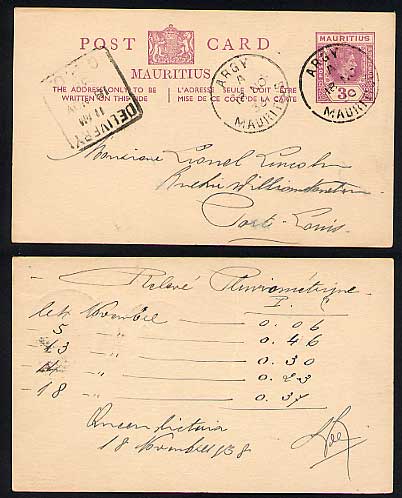 POST CARD
MAURITIUS
THE ADDRESS ONLY TO BE WRITTEN ON THIS SIDE
L'ADRESSE SEULE DOIT ÊTRE MISE DE CE CÔTÉ DE LA CARTE
MAURITIUS
ARGY
MAURITIUS
ARGY
MAURITIUS
DELIVERY
11 AM
Monsieur Lionel Lincoln
Port-Louis
Relevé Pluviométrique
le 4 Novembre — 0.06
5 " — 0.46
13 " — 0.30
" — 0.23
18 " — 0.37
Queen Victoria
18 Novembre 1938